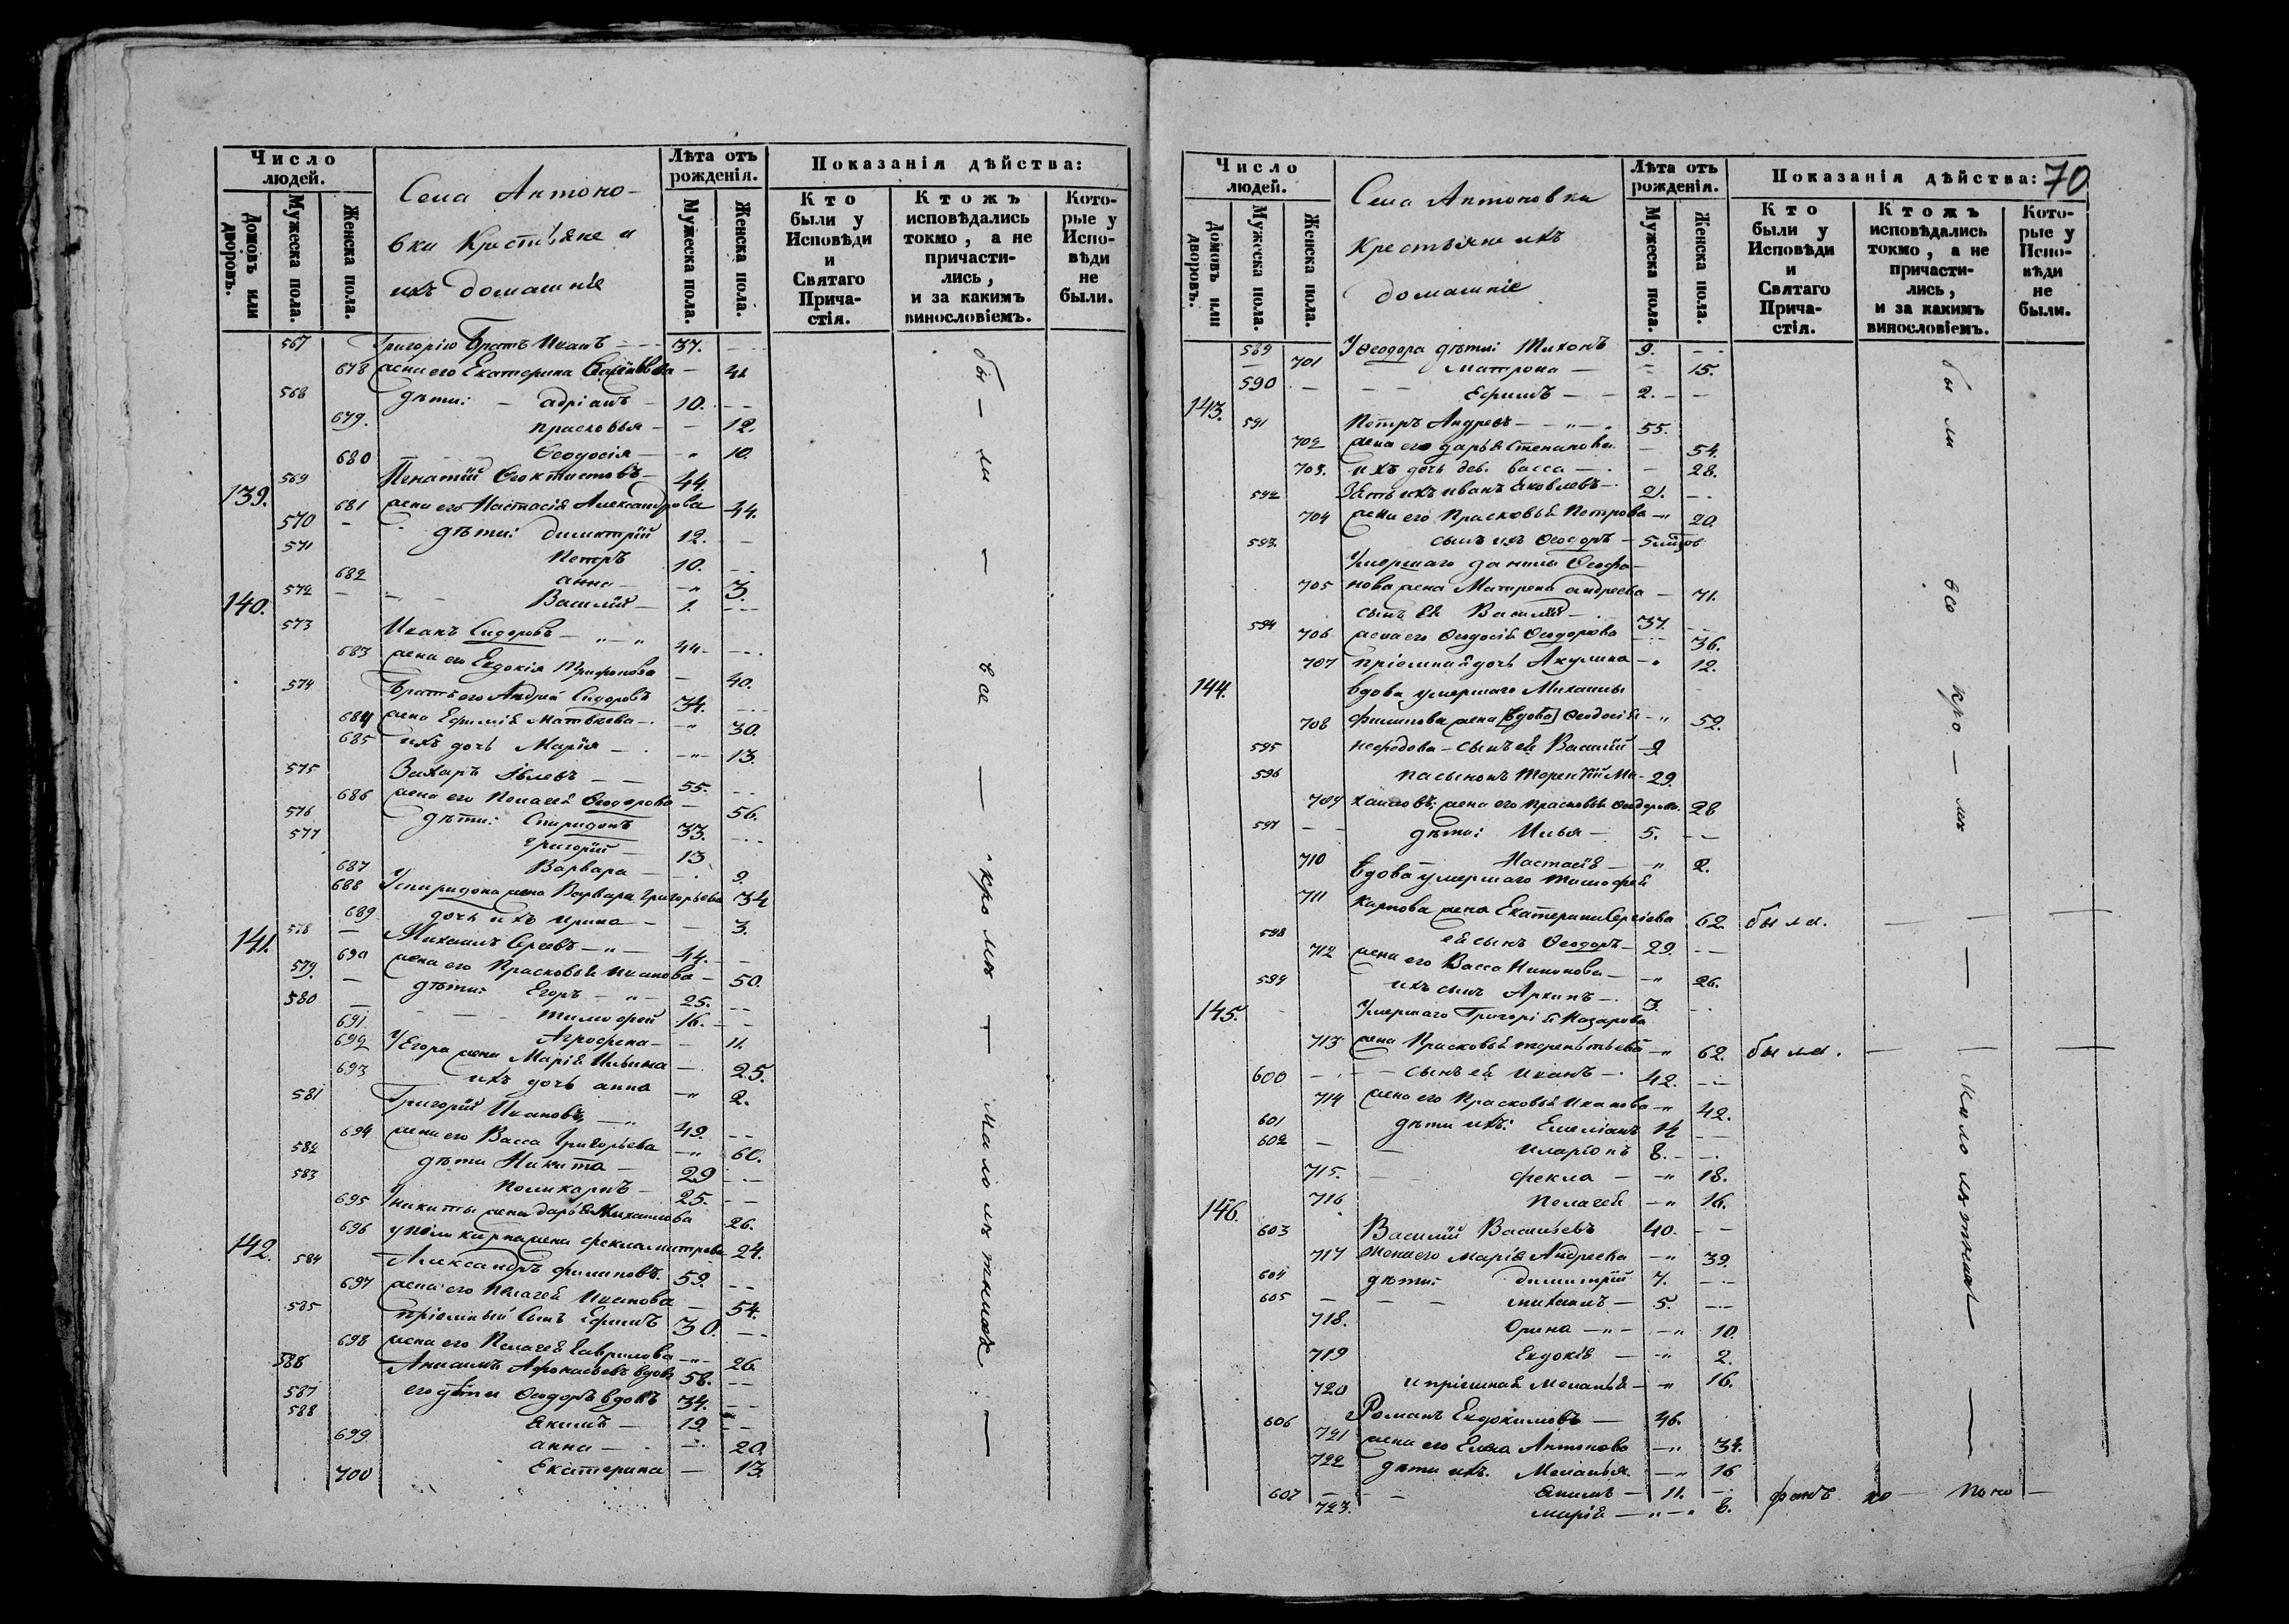 Число людей.
Домовъ или дворовъ.
Мужеска пола.
Женска пола.
Села Антоно-
вки Крестьяне и
ихъ домашніе
Лѣта отъ рожденія.
Мужеска пола.
Женска пола.
Показанія дѣйства:
Кто были у Исповѣди и Святаго Причастія.
Ктожъ исповѣдались токмо, а не причастились, и за какимъ винословіемъ.
Которые у Исповѣди не были.
567 Григорію братъ Иванъ 37.
678 жена его Екатерина 41
568 дѣти: Адріанъ 10.
679. Прасковья 12.
680 Ѳеодосія 10.
569 Игнатій Ѳеоктистовъ 44.
139. 681 жена его Настасія Александрова 44.
570 дѣти: Димитрій 12.
571 Петръ 10.
682 Анна 3.
140. 572 Василій 1.
573 Иванъ Сидоровъ 44.
683 жена его Евдокія Трифонова 40.
574 Братъ его Андрей Сидоровъ 34.
684 жена Ефимія Матвѣева 30.
685 ихъ дочь Марія 13.
575 Захаръ 55.
686 жена его Пелагея Ѳеодорова 56.
576 дѣти: Спиридонъ 33.
577 Григорій 13
687 Варвара 9.
688 У Спиридона жена Варвара Григорьева 34
689 дочь ихъ Ирина 3.
141. 578 Михаилъ 44.
690 жена его Прасковья Иванова 50.
579. дѣти: Егоръ 25.
580 Тимофей 16.
691 Агрофена 11.
692 У Егора жена Марія Ильина 25.
693 ихъ дочь Анна 2.
581 Григорій Ивановъ 49.
694 жена его Васса Григорьева 60.
582 дѣти Никита 29
583 Поликарпъ 25.
695 У Никиты жена Дарья Михаилова 26.
696 у Поликарпа жена Фекла 24.
142. 584 Александръ Филиповъ 59.
697 жена его Пелагея Иванова 54.
585 пріемный сынъ Ефимъ 30.
698 жена его Пелагея Гаврилова 26.
586 Анисимъ Афонасьевъ вдовъ 58.
587 его дѣти Ѳеодоръ вдовъ 34.
588 Якимъ 19.
699 Анна 20.
700 Екатерина 13.
бы — ли — все — кромѣ — малолѣтнихъ —
70
Число людей.
Домовъ или дворовъ.
Мужеска пола.
Женска пола.
Села Антоновки
Крестьяне ихъ
домашніе
Лѣта отъ рожденія.
Мужеска пола.
Женска пола.
Показанія дѣйства:
Кто были у Исповѣди и Святаго Причастія.
Ктожъ исповѣдались токмо, а не причастились, и за какимъ винословіемъ.
Которые у Исповѣди не были.
589 У Ѳеодора дѣти: Тихонъ 9.
701 Матрона 15.
590 Ефимъ 2.
143. 591 Петръ Андревъ 55.
702 жена его Дарья Степанова 54.
703. ихъ дочь дев. Васса 28.
592 Зять ихъ Иванъ Яковлевъ 21.
704 жена его Прасковья Петрова 20.
593 сынъ ихъ Ѳеодоръ
Умершаго Данилы Ѳеофа-
705 нова жена Матрена Андреева 71.
594 сынъ ея Василій 37.
706 жена его Ѳеодосія Ѳеодорова 36.
707 пріемная дочь Акулина 12.
144. вдова умершаго Михаилы
708 Филипова жена [вдова] Ѳеодосія 52.
595 Нефедова — сынъ ея Василій 9
596 пасынокъ Терентій Ми- 29.
709 хаиловъ; жена его Прасковья Ѳеодорова 28
597 дѣти: Илья 5.
710 Настасія 2.
вдова умершаго Тимофея
711 Карпова жена Екатерина Сергіева 62. была.
598 ея сынъ Ѳеодоръ 29.
712 жена его Васса Никонова 26.
599 ихъ сынъ Архипъ 3.
145. Умершаго Григорія Назарова
713 жена Прасковья Терентьева 62. была.
600 сынъ ея Иванъ 42.
714 жена его Прасковья Иванова 42.
601 дѣти ихъ: Емеліанъ 14
602 Иларіонъ 8.
715. Фекла 18.
716 Пелагея 16.
146. 603 Василій Васильевъ 40.
717 жена его Марія Андреева 39.
604 дѣти: Димитрій 7.
605 Михаилъ 5.
718. Орина 10.
719 Евдокія 2.
720 и пріемная Меланья 16.
606 Романъ Евдокимовъ 46.
721 жена его Елена Антонова 34.
722 дѣти ихъ. Меланья 16
607 Якимъ 11.
723. Марія 8.
бы ли все кро — мѣ — малолѣтныхъ —